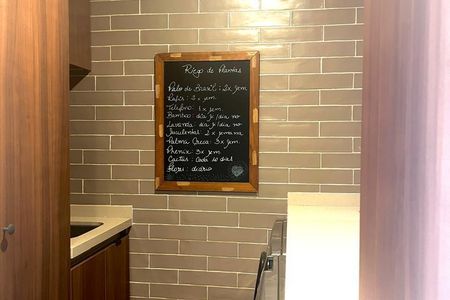 Riego de Plantas
Palo de Brasil: 2x sem
Rafis: 2 x sem.
Telefono: 1 x sem.
Bamboo: día si / día no
Lavanda: día si / día no
Suculentas: 2 x semana
Palma Areca: 3x sem
Phenix: 3x sem.
Cactus: Cada 10 días
Flores: diario